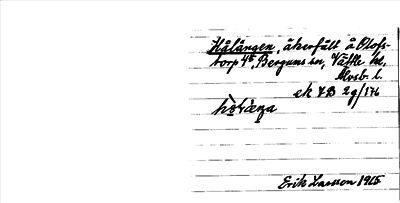 Hålängen, åkerfält å Olofs-
torp 4⁵, Bergums sn, Vättle hd,
Älvsb. l.
ek 7B 2g/176
Erik Larsson 1915